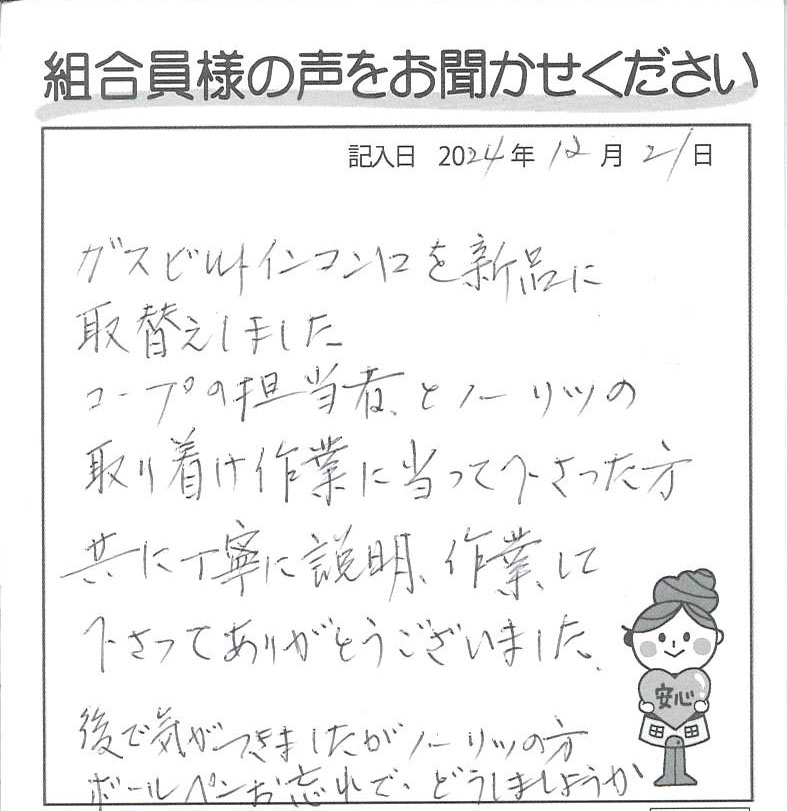 組合員様の声をお聞かせください
記入日 2024年 12月 21日
ガスビルトインコンロを新品に
取替えしました
コープの担当者、とノーリツの
取り着け作業に当って下さった方
共に丁寧に説明、作業して
下さってありがとうございました。
後で気がつきましたがノーリツの方
ボールペンお忘れで、どうしましょうか
安心